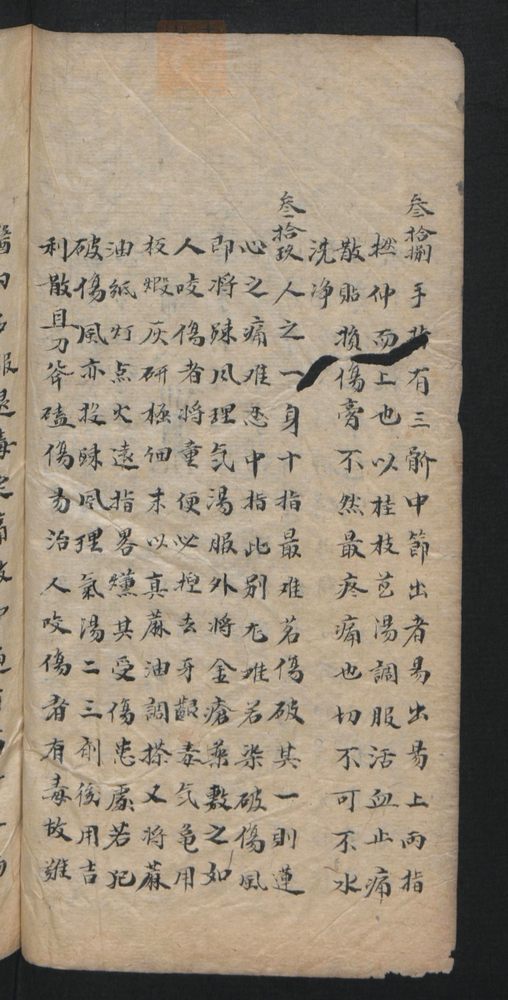 叁拾捌 手指有三骱中節出者易出易上両指
撚伸而上也以桂枝芑湯調服活血止痛
散貼損傷膏不然最疼痛也切不可不水
洗净
叁拾玖 人之一身十指最难若傷破其一則連
心之痛难忍中指比别尤难若染破傷風
即将疎風理气湯服外将金瘡藥敷之如
人咬傷者将童便必捏去牙齦毒气龟用
板煅灰研極细末以真蔴油調搽又将蔴
油紙灯点火遠指畧爁其受傷患處若犯
破傷風亦投疎風理氣湯二三剤後用吉
利散且刀斧磕傷易治人咬傷者有毒故难